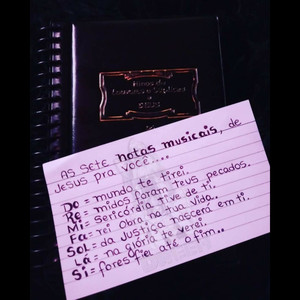 Hinos de
Louvores e Súplicas
a
DEUS
As Sete notas musicais, de
Jesus pra você....
Do = mundo te tirei.
Re = midos foram teus pecados.
Mi = Sericórdia tive de ti.
Fa = rei Obra na tua vida..
Sol = da Justiça nascerá em ti.
Lá = na glória te verei.
Si = fores fiel até o fim..